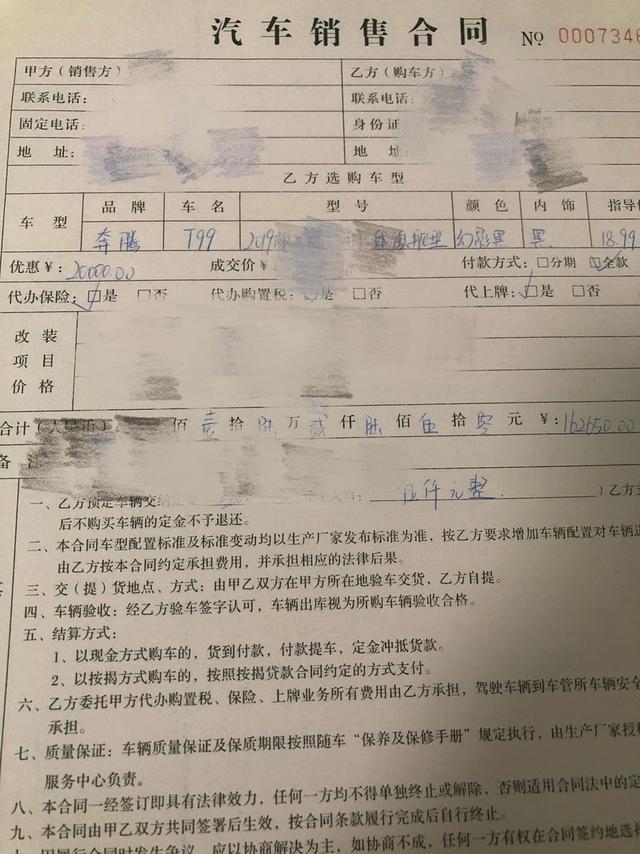 汽车销售合同 No 0007346
甲方（销售方） 乙方（购车方）
联系电话： 联系电话：
固定电话： 身份证
地 址： 地 址：
乙方选购车型
车 型 品 牌 车 名 型 号 颜 色 内 饰 指导
奔腾 T99 2019 幻影黑 黑 18.99
优惠￥：20000.00 成交价￥： 付款方式：□分期 ☑全款
代办保险：☑是 □否 代办购置税：□是 □否 代上牌：☑是 □否
改 装
项 目
价 格
合计（人民币） 佰 壹 拾 陆 万 贰 仟 陆 佰 伍 拾 零 元 ￥：162650.00
备
一、乙方预定车辆交纳定金 元（大写： 伍仟元整 ）乙方
后不购买车辆的定金不予退还。
二、本合同车型配置标准及标准变动均以生产厂家发布标准为准，按乙方要求增加车辆配置对车辆
由乙方按本合同约定承担费用，并承担相应的法律后果。
三、交（提）货地点、方式：由甲乙双方在甲方所在地验车交货，乙方自提。
四、车辆验收：经乙方验车签字认可，车辆出库视为所购车辆验收合格。
五、结算方式：
1、以现金方式购车的，货到付款，付款提车，定金冲抵货款。
2、以按揭方式购车的，按照按揭贷款合同约定的方式支付。
六、乙方委托甲方代办购置税、保险、上牌业务所有费用由乙方承担，驾驶车辆到车管所车辆安全
承担。
七、质量保证：车辆质量保证及保质期限按照随车“保养及保修手册”规定执行，由生产厂家授权
服务中心负责。
八、本合同一经签订即具有法律效力，任何一方均不得单独终止或解除，否则适用合同法中的定
九、本合同由甲乙双方共同签署后生效，按合同条款履行完成后自行终止。
因履行合同时发生争议，应以协商解决为主，如协商不成，任何一方有权在合同签约地选择